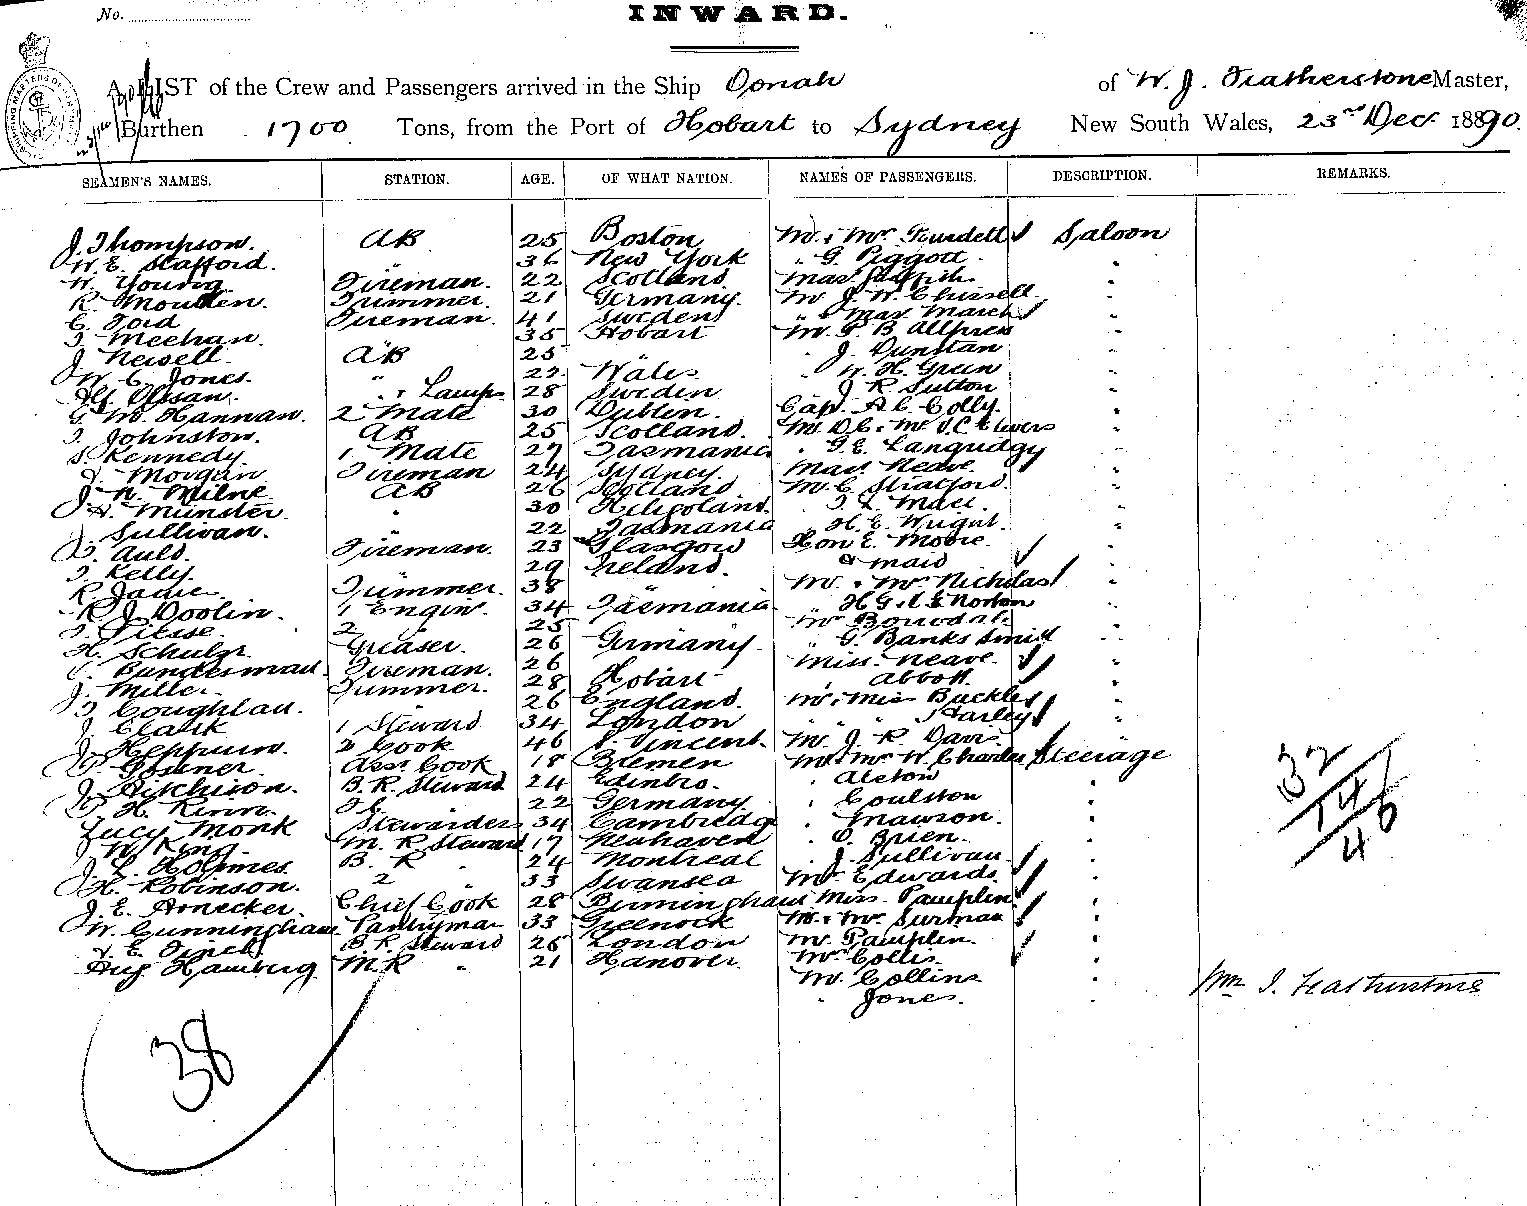 No.
INWARD.
A LIST of the Crew and Passengers arrived in the Ship Oonah of W. J. Featherstone Master,
Burthen 1700 Tons, from the Port of Hobart to Sydney New South Wales, 23rd Dec 1890.
SEAMEN'S NAMES. STATION. AGE. OF WHAT NATION. NAMES OF PASSENGERS. DESCRIPTION. REMARKS.
J. Thompson. AB 25 Boston Mr & Mrs Saloon
W. E. Stafford. " 36 New York " G. Piggott "
W. Young Fireman. 22 Scotland Mas "
R. Moulden. Trimmer. 21 Germany. Mr J. W. Chissell "
C. Ford Fireman. 41 Sweden " Mas. March "
T. Meehan. 35 Hobart Mr P B Allpress "
J. Newell AB 25 " J. Dunstan "
W. C. Jones. " 22 Wales " W. H. Green "
Olssan. " & Lamps 28 Sweden " J R Sutton "
G. M. Hannan. 2 Mate 30 Dublin. Cap. A. C. Colly. "
T. Johnston. AB 25 Scotland. Mr D. C. & Mr J. C. "
S. Kennedy 1 Mate 27 Tasmania " G. E. Langridgy "
J. Morgan Fireman 24 Sydney Mas. Neave "
J. N. Milne AB 26 Scotland Mr C. Stratford. "
H. Munster. " 30 Heligoland. "
J. Sullivan. 22 Tasmania " H. E. Wright. "
T. Auld. Fireman. 23 Glasgow Hon E. Moore "
T. Kelly. 29 Ireland. & maid "
R. Jadie. Trimmer. 38 Mr & Mrs Nicholas "
R. J. Doolin. 1 Engin. 34 Tasmania. " H G & S Norton "
T. Piesse. 2 " 25 " Mr "
H. Schulz. Greaser. 26 Germany. " G. Banks Smith "
C. Bundesman. Fireman. 26 Miss. Neave. "
J. Miller. Trimmer. 28 Hobart " Abbott. "
T. Coughlan. 26 England. Mr & Miss Buckley "
J. Clark 1 Steward 34 London " " " Harley "
J. Heppurn. 2 Cook 46 St. Vincent. Mr J. R. Davis "
Ass. Cook 18 Bremen Mr & Mrs W. Charles Steerage
J. Aitchison. B. R. Steward 24 Edinbro. "
H. Rinn. 22 Germany " Coulston "
Lucy Monk Stewardess 34 Cambredge " Mawson. "
W. King. M. R Steward 17 Neuhaven " O. Brien. "
J. L. Holmes. B. R " 24 Montreal " J. Sullivan "
H. Robinson. 2 " 33 Swansea Mr Edwards. "
J. E. Arnecker. Chief Cook 28 Birmingham Miss. Pamplin "
W. Cunningham. Pantryman 33 Greenock Mr & Mrs Surman "
H. E. Finch. B. R. Steward 25 London Mr Pamplin. "
Aug. Hamberg. M. R " 21 Hanover. Mr Collis "
Mr Collins "
" Jones. "
32
14
46
Featherstone
38